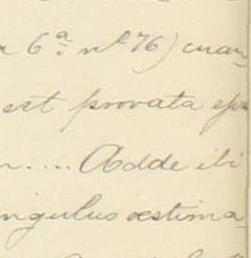 6ª. nº 76) cuan
est provata
.... Adde ibi
ngulus æstima